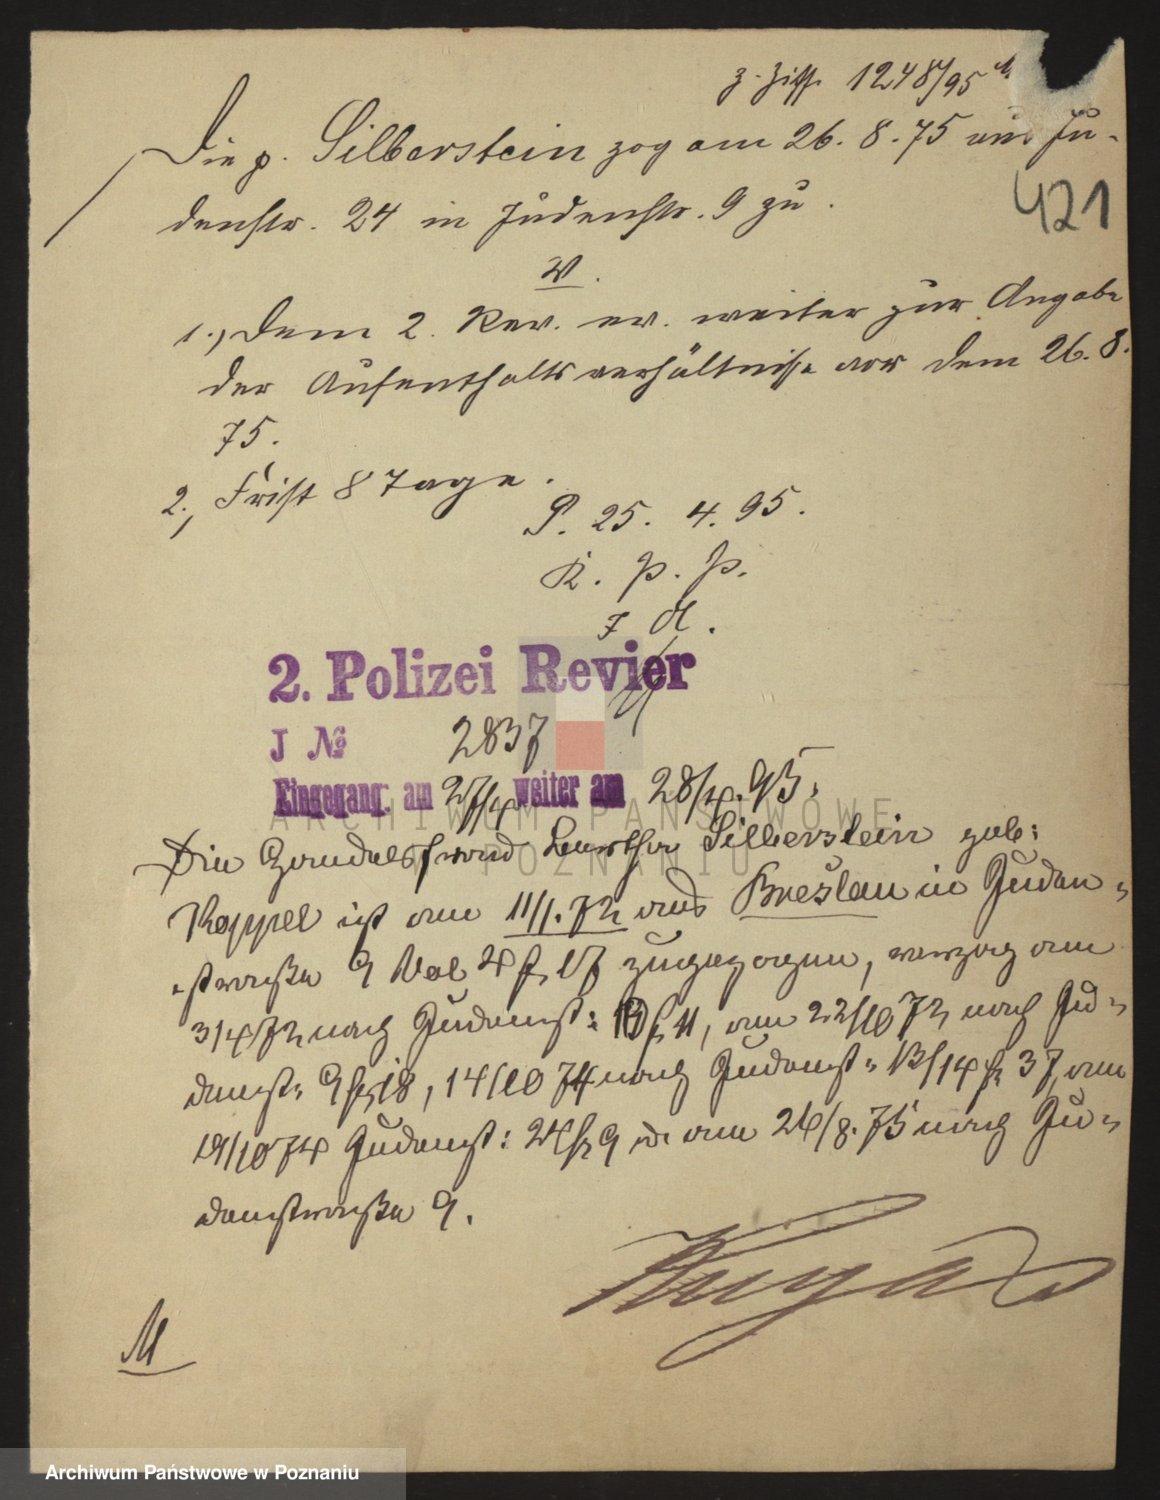 z. Ziff. 1248/95
Die p. Silberstein zog am 26. 8. 75 aus Ju-
421
denstr. 24 in Judenstr. 9 zu.
V.
1., Dem 2. Rev. er. weiter zur Angabe
der Aufenthaltsverhältnisse vor dem 26. 8.
75.
2., Frist 8 Tage.
P. 25. 4. 95.
K. P. P.
J. d.
2. Polizei Revier
J № 2837
Eingegang. am 27/4 weiter am 28/4. 95.
Die Handelsfrau Bertha Silberstein geb:
Koppel ist am 11/1. 72 aus Breslau in Juden-
straße 9 bei zugezogen, verzog am
3/4 72 nach Judenst: 11, am 22/10 72 nach Ju-
denst: 9 18, 14/10 74 nach Judenst: 13/14 37, am
19/10 74 Judenst: 24 9 u. am 26/8. 75 nach Ju-
denstraße 9.
M
ARCHIWUM PAŃSTWOWE
W POZNANIU
Archiwum Państwowe w Poznaniu